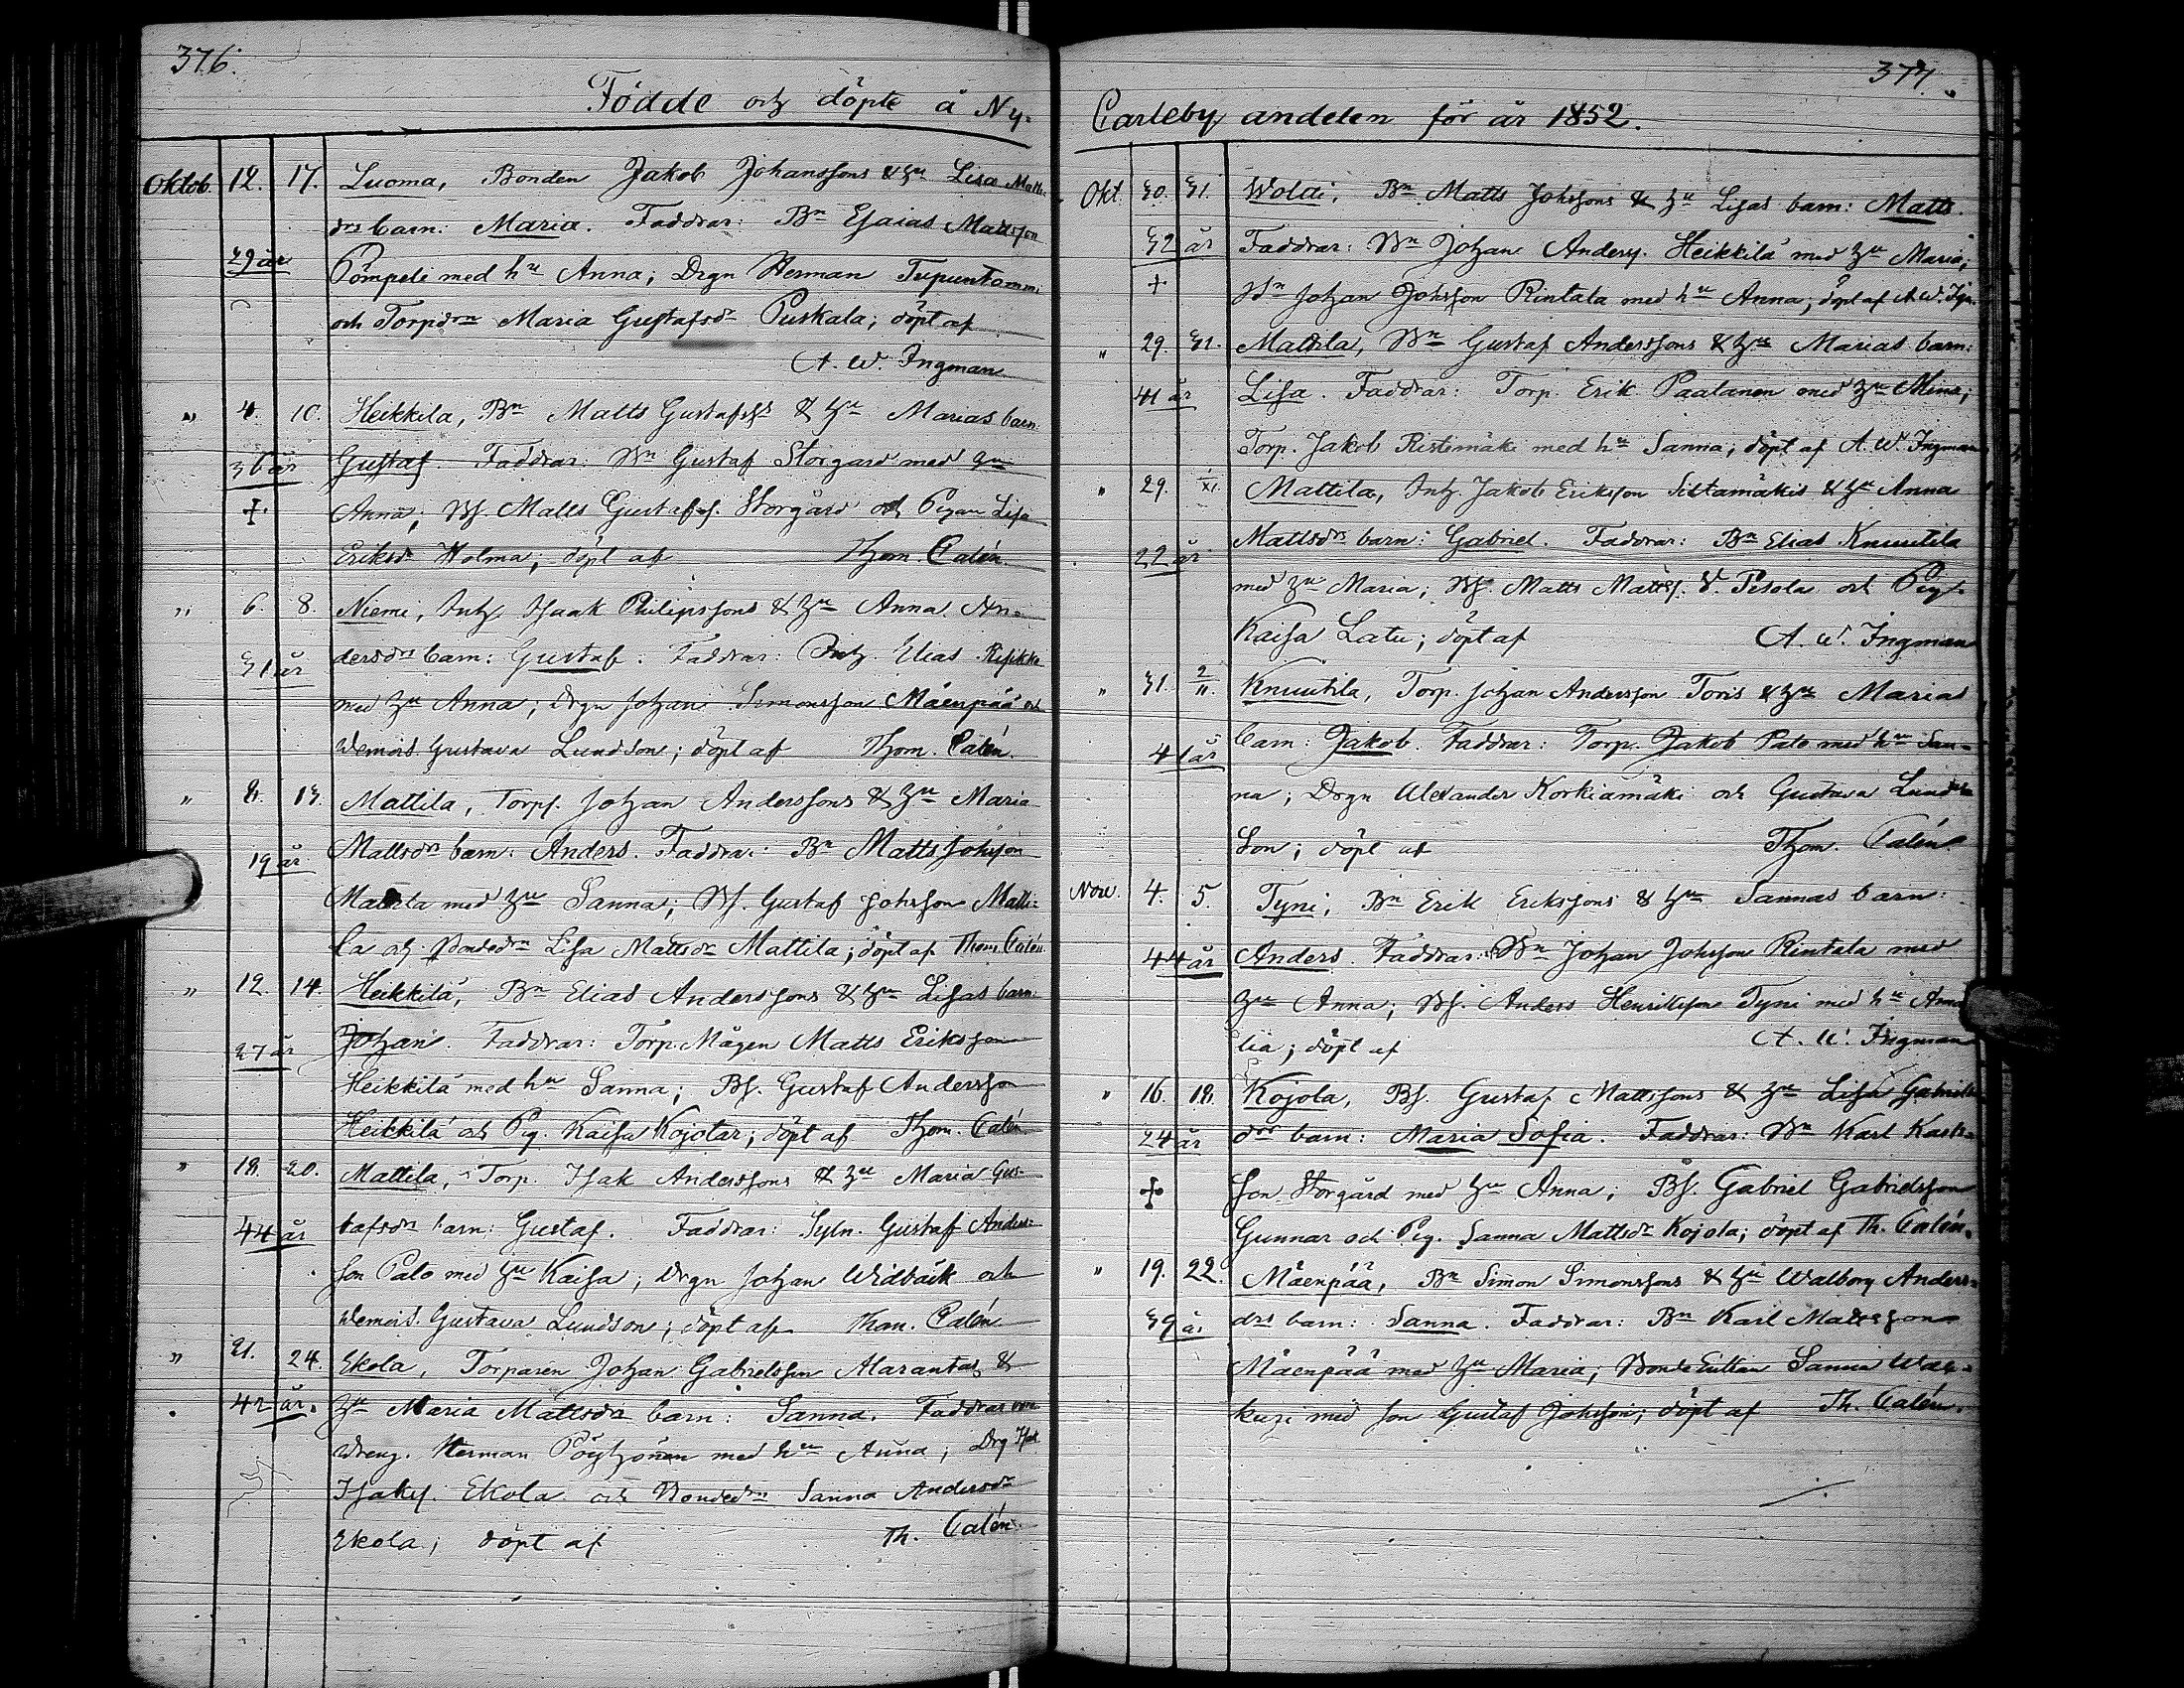 376.
Födde och döpte å Ny-
Oktob. 12. 17. Luoma, Bonden Jakob Johanssons & hu Lisa Matts-
drs barn: Maria. Faddrar: Bn Esaias Mattsson
29 år Pömpeli med hu Anna; Drgn Herman
och Torpdrn Maria Gustafsdr Puskala; döpt af
A. W. Ingman
" 4. 10. Heikkilä, Bn Matts Gustafss & hu Marias barn:
36 år Gustaf. Faddrar: Bn Gustaf Storgård med hu
+ Anna; Bs. Matts Gustafss. Storgård och Pigan Lisa
Eriksdr Holma; döpt af Thom. Calén.
" 6. 8. Niemi, Inh. Isaak Philipssons & hu Anna An-
31 år dersdrs barn: Gustaf. Faddrar: Inh. Elias
med hu Anna; Drgn Johan Simonsson Mäenpää och
Demois. Gustava Lundson; döpt af Thom. Calén.
" 8. 13. Mattila, Torps. Johan Anderssons & hu Maria
19 år Mattsdrs barn: Anders. Faddrar: Bn Matts Johsson
Mattila med hu Sanna; Bs. Gustaf Johsson Matti-
la och Bondedn Lisa Mattsdr Mattila; döpt af Thom. Calén
" 12. 14. Heikkilä, Bn Elias Anderssons & hu Lisas barn:
27 år Johan. Faddrar: Torp. Mågen Matts Eriksson
Heikkilä med hu Sanna; Bs. Gustaf Andersson
Heikkilä och Pig. Kaisa Kojolar; döpt af Thom. Calén
" 18. 20. Mattila, Torp. Isak Anderssons & hu Maria Gus-
44 år tafsdrs barn: Gustaf. Faddrar: Gustaf Anders-
son Pato med hu Kaisa; Drgn Johan Widbäck och
Demois. Gustava Lundson; döpt af Thom. Calén
" 21. 24. Ekola, Torparen Johan Gabrielsson Alarantas &
42 år. hu Maria Mattsdr barn: Sanna. Faddrar
Dreng. Herman Pöyhönen med hu Anna; Drg
Isaks. Ekola och Bondedn Sanna Andersdr
Ekola; döpt af Th. Calén

377.
Carleby andelen för år 1852.
Okt. 30. 31. Woldi, Bn Matts Johssons & hu Lisas barn: Matts.
32 år Faddrar: Bn Johan Anderss. Heikkilä med hu Maria;
+ Bn Johan Johsson Rintala med hu Anna; döpt af A. W. Ingn.
" 29. 31. Mattila, Bn Gustaf Anderssons & hu Marias barn:
41 år Lisa. Faddrar: Torp. Erik Paalanen med hu Mina;
Torp. Jakob Ristimäki med hu Sanna; döpt af A. W. Ingman
" 29. 1/XI. Mattila, Inh. Jakob Eriksson Siltamäkis & hu Anna
22 år Mattsdrs barn: Gabriel. Faddrar: Bn Elias Knuutila
med hu Maria; Bs. Matts Mattss. W. Pesola och Pig.
Kaisa Latu; döpt af A. W. Ingman
" 31. 2/11. Knuutila, Torp. Johan Andersson Toris & hu Marias
41 år barn: Jakob. Faddrar: Torp. Jakob Pato med hu San-
na; Drgn Alexander Korkiamäki och Gustava Lund-
son; döpt af Thom. Calén
Nov. 4. 5. Tyni, Bn Erik Erikssons & hu Sannas barn:
44 år Anders. Faddrar: Bn Johan Johsson Rintala med
hu Anna; Bs. Anders Henriksson Tyni med hu Ama-
lia; döpt af A. W. Ingman
" 16. 18. Kojola, Bs. Gustaf Mattssons & hu Lisa Gabriels-
24 år drs barn: Maria Sofia. Faddrar: Bn Karl Karls-
+ son Storgård med hu Anna; Bs. Gabriel Gabrielsson
Gunnar och Pig. Sanna Mattsdr Kojola; döpt af Th. Calén.
" 19. 22. Mäenpää, Bn Simon Simonssons & hu Walborg Anders-
39 år drs barn: Sanna. Faddrar: Bn Karl Mattsson
Mäenpää med hu Maria; Bonde Enkan Sanna
med son Gustaf Johsson; döpt af Th. Calén.